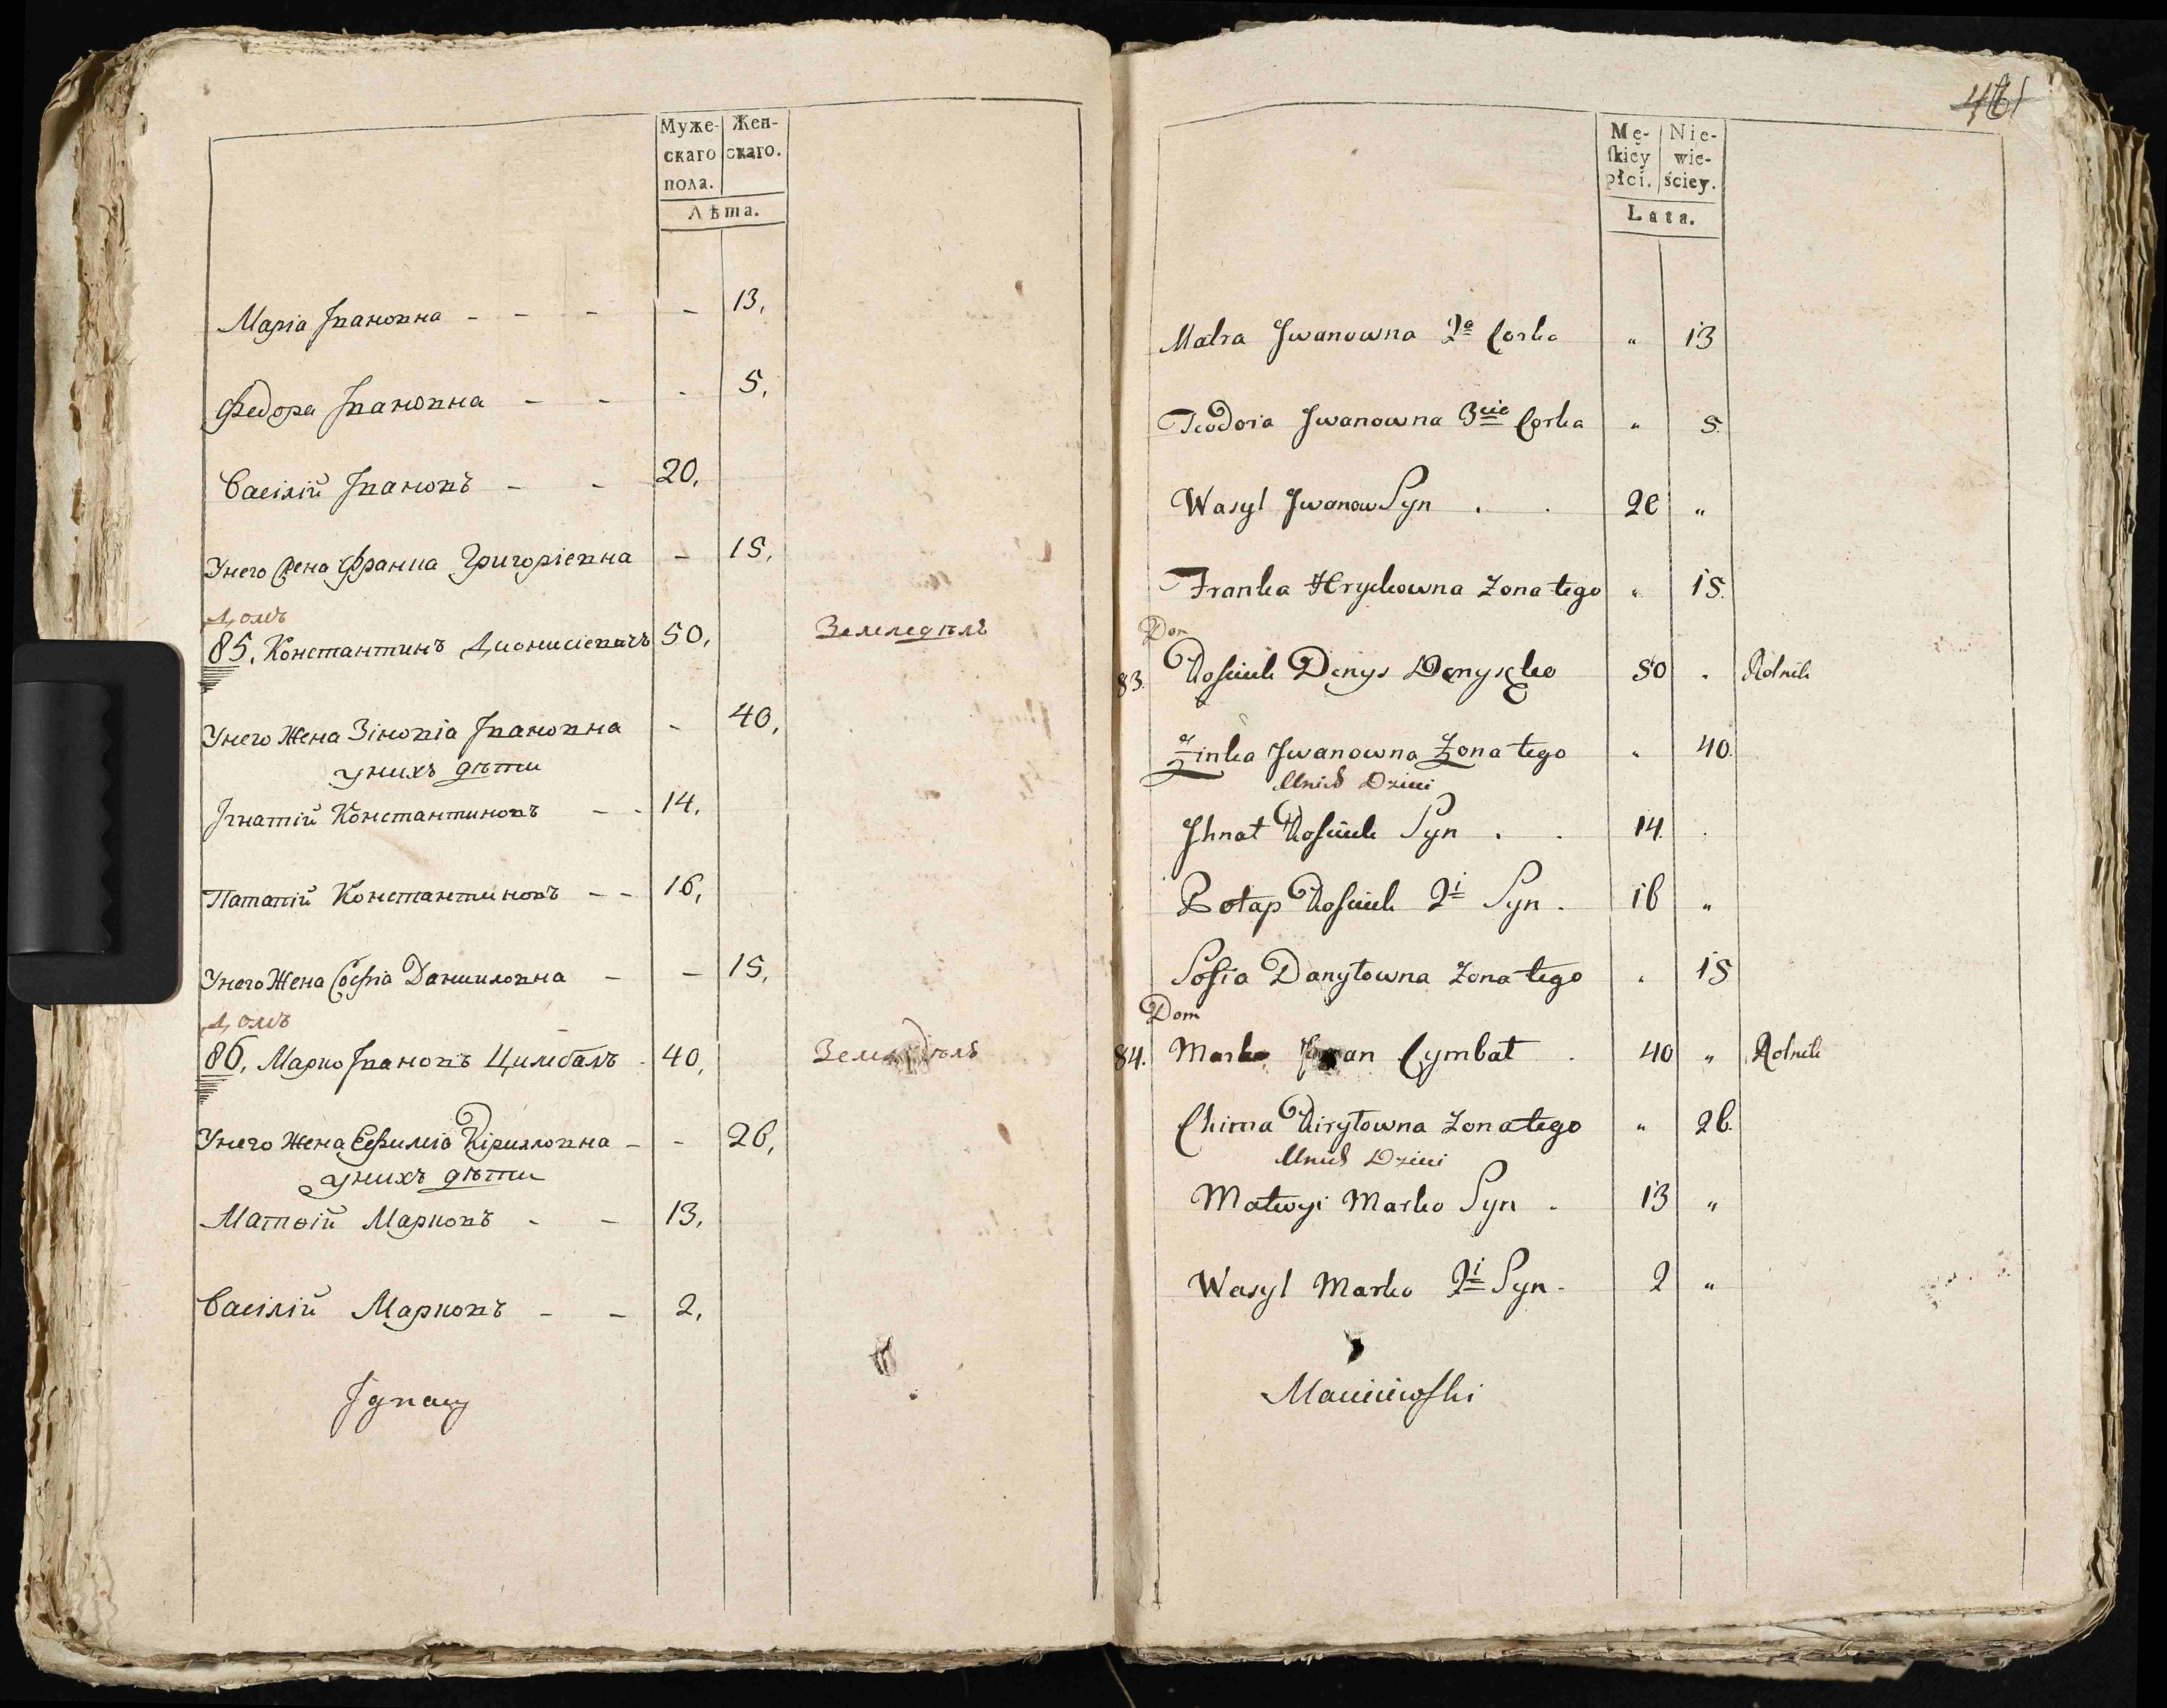 Муже-
скаго
пола.
Жен-
скаго.
Лѣта.
Маріа Івановна - - - - 13,
Федора Івановна - - - 5,
Васілій Івановъ - - 20,
Унего Жена Франка Григоріевна - 15,
Домъ
85. Константинъ Дионисіевичъ 50, Земледѣлъ
Унего Жена Зіновіа Івановна - 40,
Унихъ дѣти
Ігнатій Константиновъ - - 14,
Патапій Константиновъ - - 16,
Унего Жена Софіа Даниловна - - 15,
Домъ
86. Марко Івановъ Цимбалъ 40, Земледѣлъ
Унего Жена Ефиміа Кірилловна - - 26,
Унихъ дѣти
Матѳій Марковъ - - 13,
Васілій Марковъ - - 2,
Ignacy
461
Mę-
ſkiey
płci.
Nie-
wie-
ściey.
Lata.
Matra Jwanowna 2a Corka " 13
Teodora Jwanowna 3cie Corka " 5.
Wasyl Jwanow Syn . . 20 "
Franka Hryckowna Zona tego " 15.
Dom
83. Kościuk Denys Denyszko 50 . Rolnik
Zinka Jwanowna Zona tego " 40.
Unich Dzieci
Jhnat Kościuk Syn . . 14. .
Potap Kościuk 2i Syn . 16 "
Sofia Danyłowna Zona tego . 15
Dom
84. Marko Jwan Cymbał . 40 " Rolnik
Chima Kiryłowna Zona tego " 26.
Unich Dzieci
Matwyi Marko Syn . 13 "
Wasyl Marko 2i Syn . 2 "
Macieiewſki